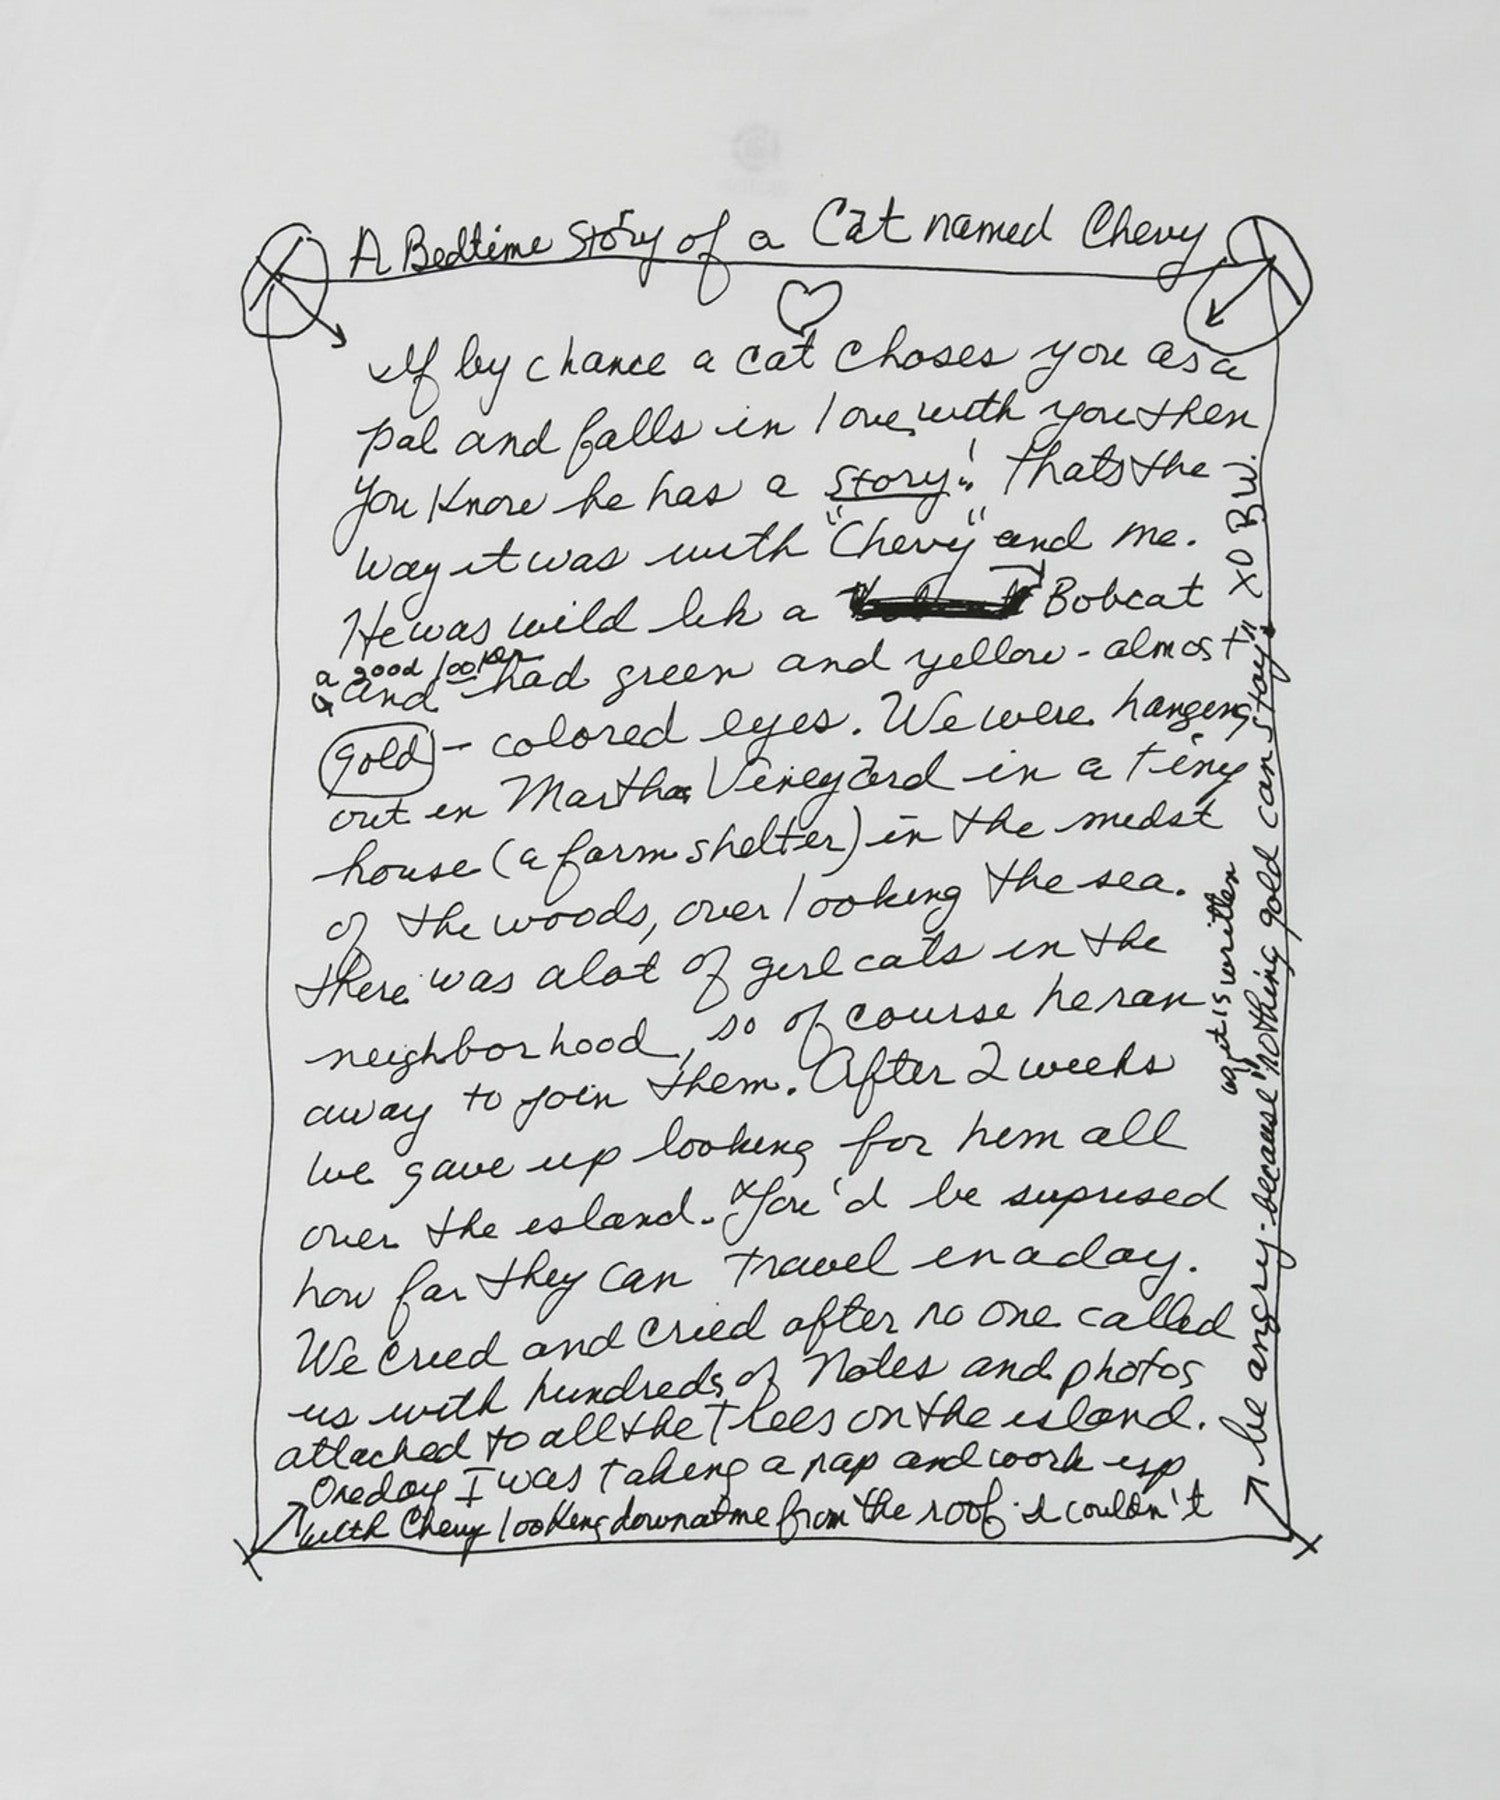 A Bedtime Story of a Cat named Chevy
If by chance a cat choses you as a
pal and falls in love with you then
you know he has a story! thats the
way it was with "Chevy" and me.
He was wild lik a Bobcat
a good looker
and had green and yellow - almost
gold - colored eyes. We were hanging
out in Marthas Vineyard in a tiny
house (a farm shelter) in the midst
of the woods, over looking the sea.
there was alot of girl cats in the
neighborhood, so of course he ran
away to join them. After 2 weeks
we gave up looking for him all
over the island. You'd be suprised
how far they can travel in a day.
We cried and cried after no one called
us with hundreds of notes and photos
attached to all the trees on the island.
One day I was taking a nap and work up
with Chevy looking down at me from the roof. I couldn't
be angry - because "nothing gold can stay" xo BW.
as it is written